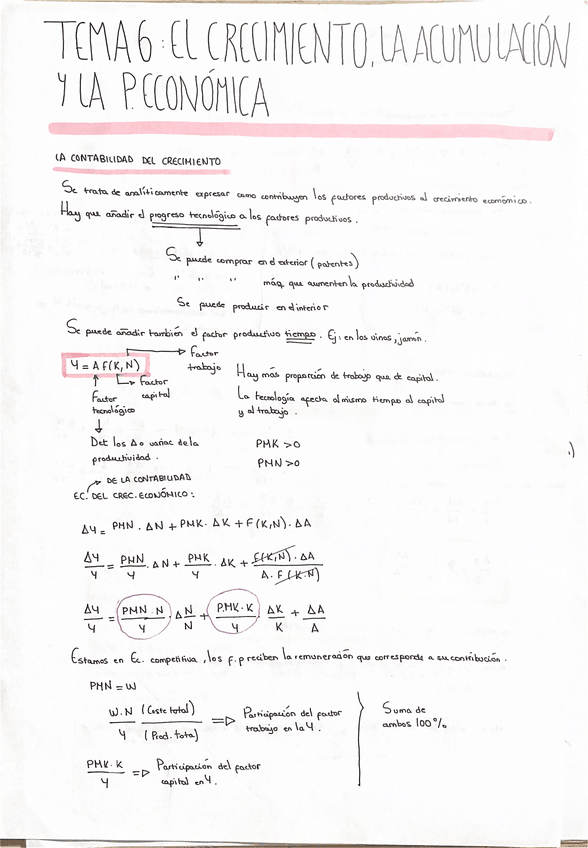 TEMA 6: EL CRECIMIENTO, LA ACUMULACIÓN
Y LA P. ECONÓMICA
LA CONTABILIDAD DEL CRECIMIENTO
Se trata de analíticamente expresar como contribuyen los factores productivos al crecimiento económico.
Hay que añadir el progreso tecnológico a los factores productivos.
Se puede comprar en el exterior (patentes)
" " " máq. que aumenten la productividad
Se puede producir en el interior
Se puede añadir también el factor productivo tiempo. Ej: en los vinos, jamón.
Y = A F(K,N)
Factor
trabajo
Factor
capital
Factor
tecnológico
Hay más proporción de trabajo que de capital.
La tecnología afecta al mismo tiempo al capital
y al trabajo.
Det. los Δ o variac de la
productividad.
PMK >0
PMN >0
DE LA CONTABILIDAD
EC. DEL CREC. ECONÓMICO:
ΔY = PMN · ΔN + PMK · ΔK + F(K,N) · ΔA
ΔY/Y = PMN/Y · ΔN + PMK/Y · ΔK + F(K,N) · ΔA / A · F(K·N)
ΔY/Y = PMN · N/Y · ΔN/N + PMK · K/Y · ΔK/K + ΔA/A
Estamos en Ec. competitiva, los f.p reciben la remuneración que corresponde a su contribución.
PMN = W
W·N (Coste total) / Y (Prod. total) => Participación del factor
trabajo en la Y.
Suma de
ambos 100%
PMK·K / Y => Participación del factor
capital en Y.